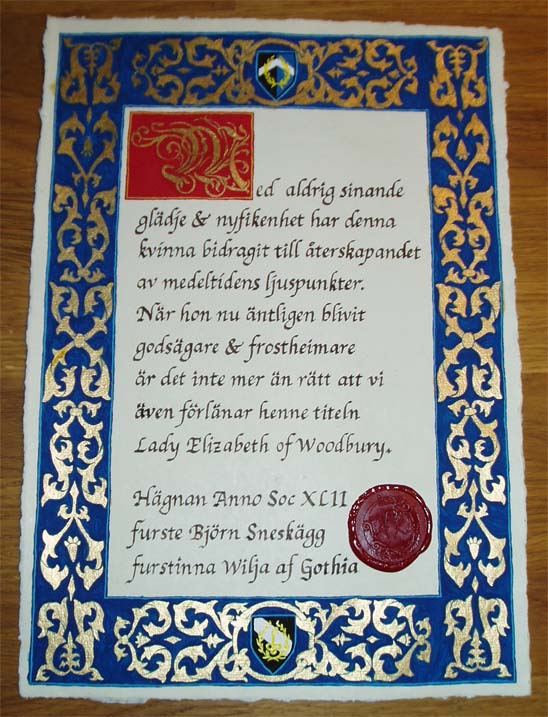 Med aldrig sinande
glädje & nyfikenhet har denna
kvinna bidragit till återskapandet
av medeltidens ljuspunkter.
När hon nu äntligen blivit
godsägare & frostheimare
är det inte mer än rätt att vi
även förlänar henne titeln
Lady Elizabeth of Woodbury.
Hägnan Anno Soc XLII
furste Björn Sneskägg
furstinna Wilja af Gothia